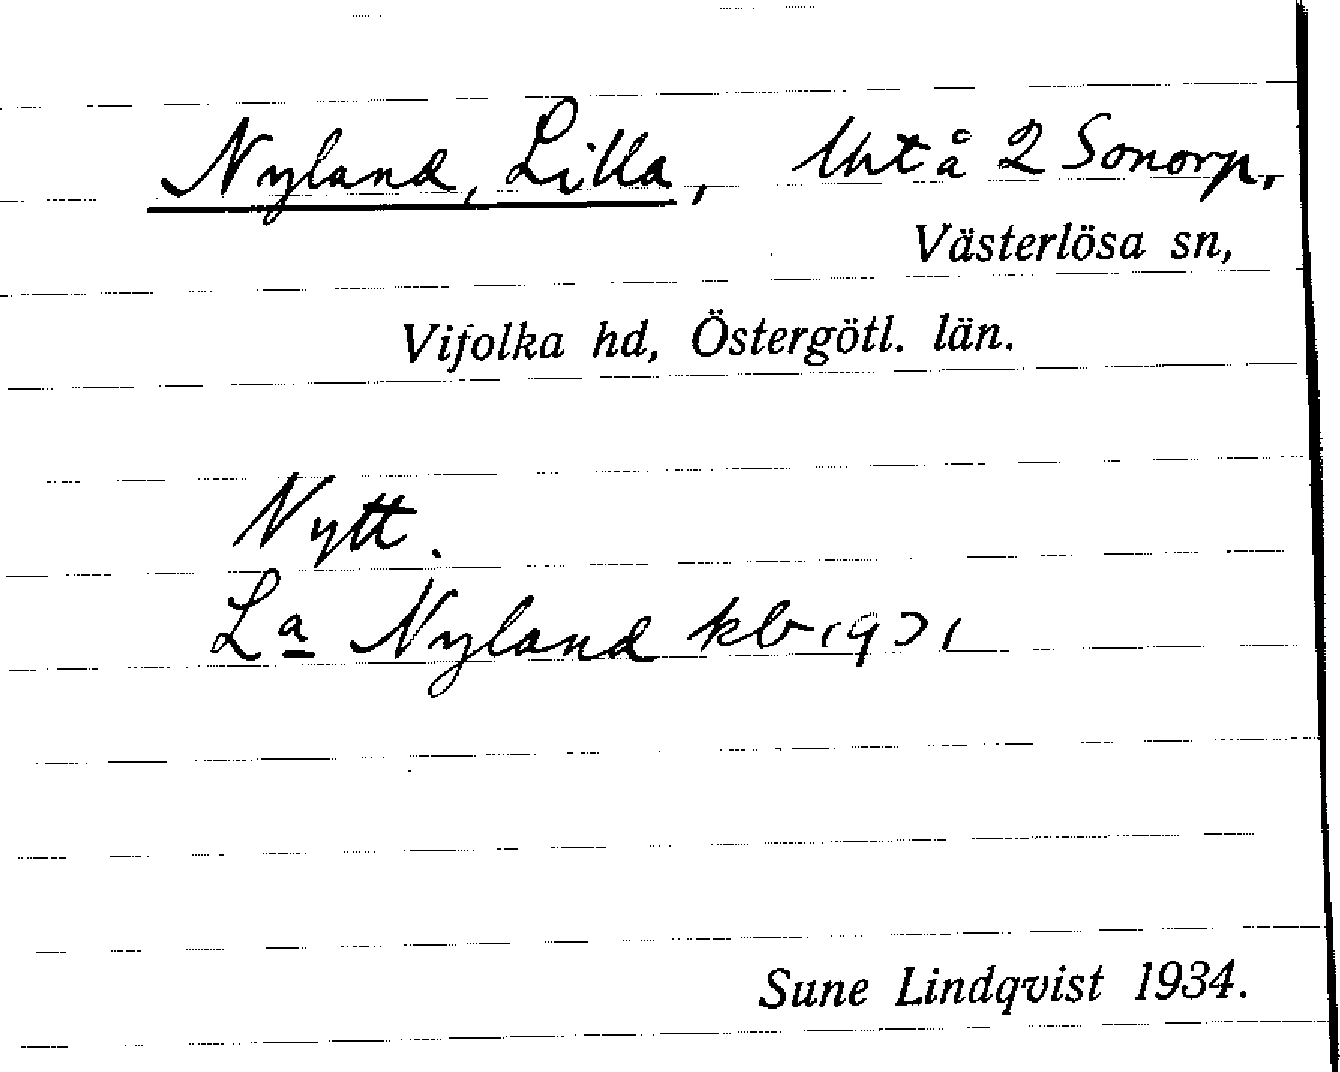 Nyland, Lilla, lht å 2 Sonorp,
Västerlösa sn,
Vifolka hd, Östergötl. län.
Nytt.
La Nyland kb 1931
Sune Lindqvist 1934.